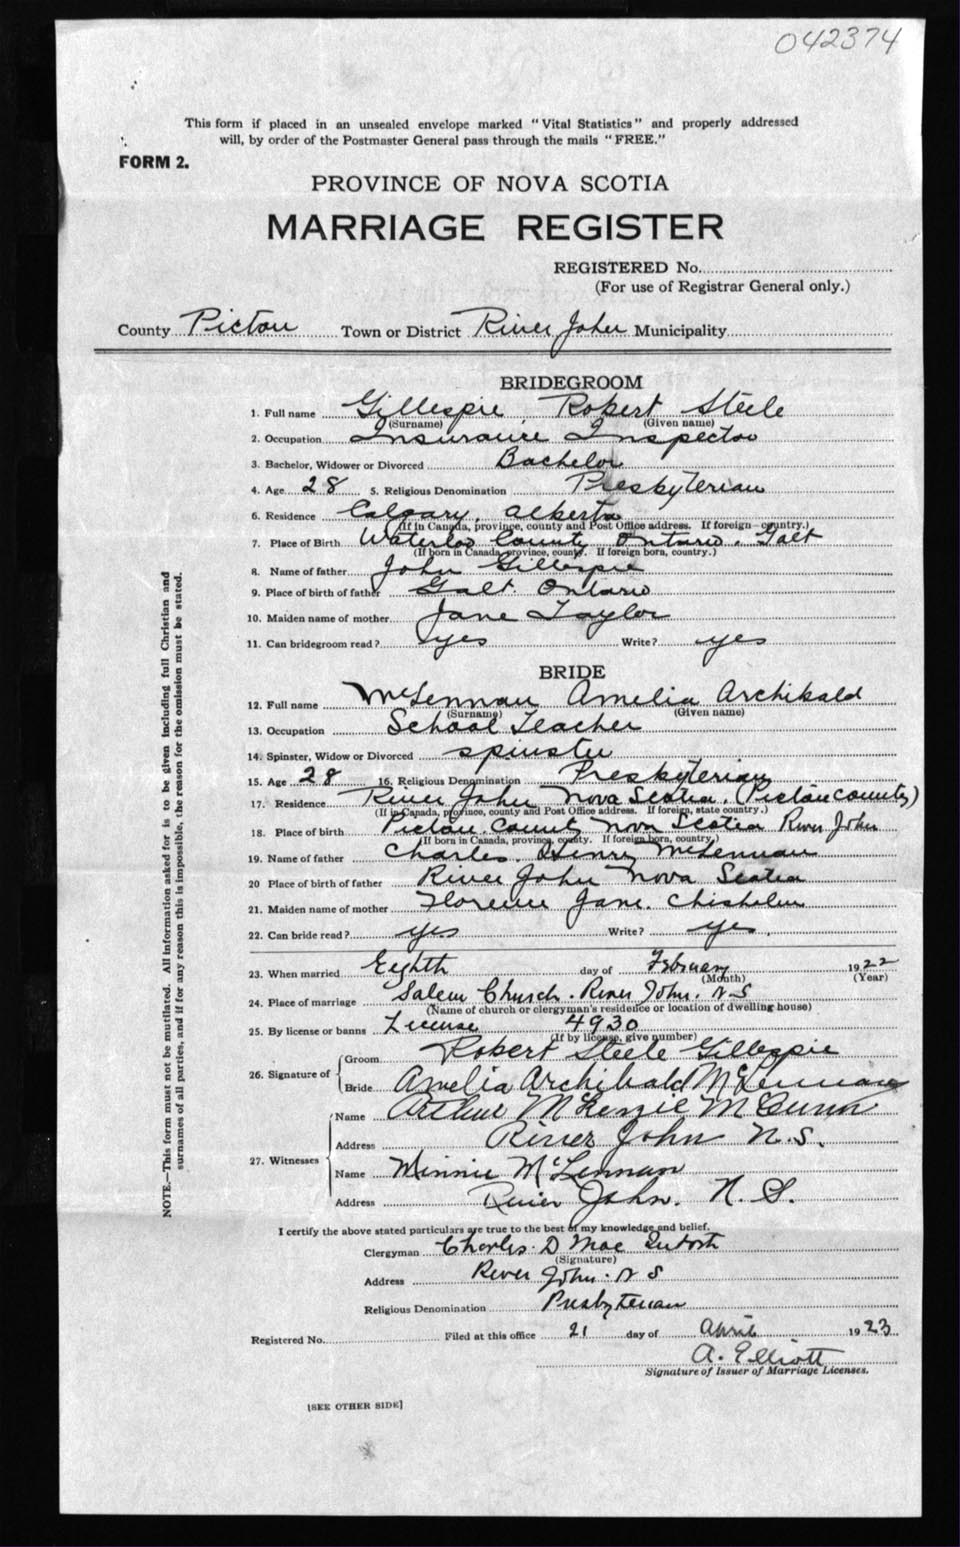 042374
This form if placed in an unsealed envelope marked "Vital Statistics" and properly addressed
will, by order of the Postmaster General pass through the mails "FREE."
FORM 2.
PROVINCE OF NOVA SCOTIA
MARRIAGE REGISTER
REGISTERED No.
(For use of Registrar General only.)
County Pictou Town or District River John Municipality
BRIDEGROOM
1. Full name Gillespie Robert Steele
(Surname) (Given name)
2. Occupation Insurance Inspector
3. Bachelor, Widower or Divorced Bachelor
4. Age 28 5. Religious Denomination Presbyterian
6. Residence Calgary, Alberta
(If in Canada, province, county and Post Office address. If foreign—country.)
7. Place of Birth Waterloo County Ontario. Galt
(If born in Canada, province, county. If foreign born, country.)
8. Name of father John Gillespie
9. Place of birth of father Galt. Ontario
10. Maiden name of mother Jane Taylor
11. Can bridegroom read? yes Write? yes
BRIDE
12. Full name McLennan Amelia Archibald
(Surname) (Given name)
13. Occupation School Teacher
14. Spinster, Widow or Divorced spinster
15. Age 28 16. Religious Denomination Presbyterian
17. Residence River John Nova Scotia. (Pictou County)
(If in Canada, province, county and Post Office address. If foreign, state country.)
18. Place of birth Pictou County Nova Scotia River John
(If born in Canada, province, county. If foreign born, country.)
19. Name of father Charles. Henry McLennan
20 Place of birth of father River John Nova Scotia
21. Maiden name of mother Florence Jane. Chisholm
22. Can bride read? yes Write? yes.
23. When married Eighth day of February 1922
(Month) (Year)
24. Place of marriage Salem Church. River John. N S
(Name of church or clergyman's residence or location of dwelling house)
25. By license or banns License 4930
(If by license, give number)
26. Signature of Groom Robert Steele Gillespie
Bride Amelia Archibald McLennan
27. Witnesses Name Arthur McKenzie McGunn
Address River John N.S.
Name Minnie McLennan
Address River John. N. S.
I certify the above stated particulars are true to the best of my knowledge and belief.
Clergyman Charles D Mac Intosh
(Signature)
Address River John. N S
Religious Denomination Presbyterian
Registered No. Filed at this office 21 day of April 1923
A. Elliott
Signature of Issuer of Marriage Licenses.
[SEE OTHER SIDE]
NOTE.—This form must not be mutilated. All information asked for is to be given including full Christian and
surnames of all parties, and if for any reason this is impossible, the reason for the omission must be stated.